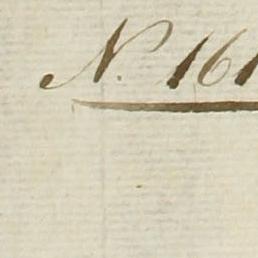 N. 161